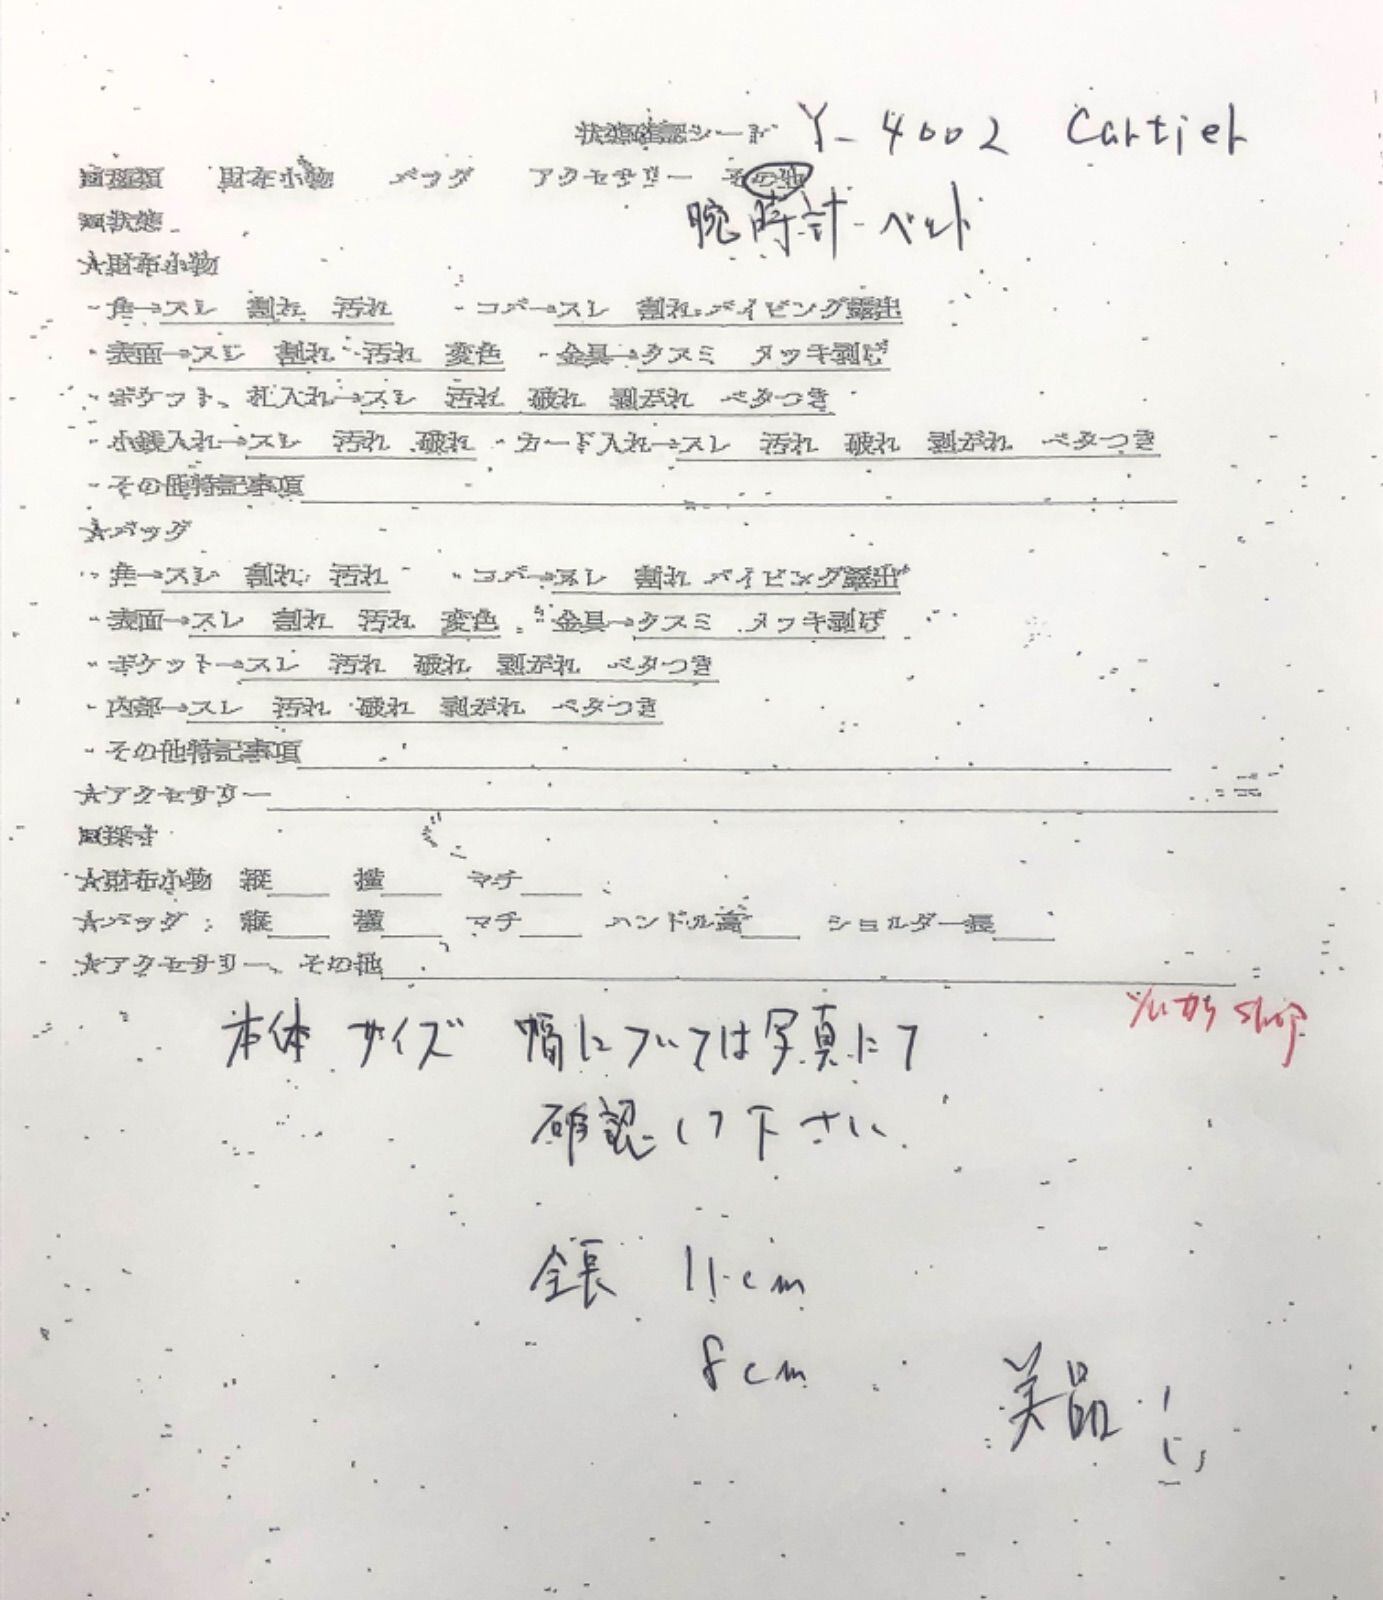 状態確認シート Y-4002 Cartier
■種類 財布小物 バッグ アクセサリー その他
■状態 腕時計ベルト
★財布小物
・角→スレ 割れ 汚れ ・コバ→スレ 割れ パイピング露出
・表面→スレ 割れ 汚れ 変色 ・金具→クスミ メッキ剥げ
・ポケット、札入れ→スレ 汚れ 破れ 剥がれ ベタつき
・小銭入れ→スレ 汚れ 破れ ・カード入れ→スレ 汚れ 破れ 剥がれ ベタつき
・その他特記事項
★バッグ
・角→スレ 割れ 汚れ ・コバ→スレ 割れ パイピング露出
・表面→スレ 割れ 汚れ 変色 ・金具→クスミ メッキ剥げ
・ポケット→スレ 汚れ 破れ 剥がれ ベタつき
・内部→スレ 汚れ 破れ 剥がれ ベタつき
・その他特記事項
★アクセサリー
■採寸
★財布小物 縦 横 マチ
★バッグ 縦 横 マチ ハンドル高 ショルダー長
★アクセサリー、その他
shop
本体サイズ 幅については写真にて
確認して下さい
全長 11cm
8cm
美品!